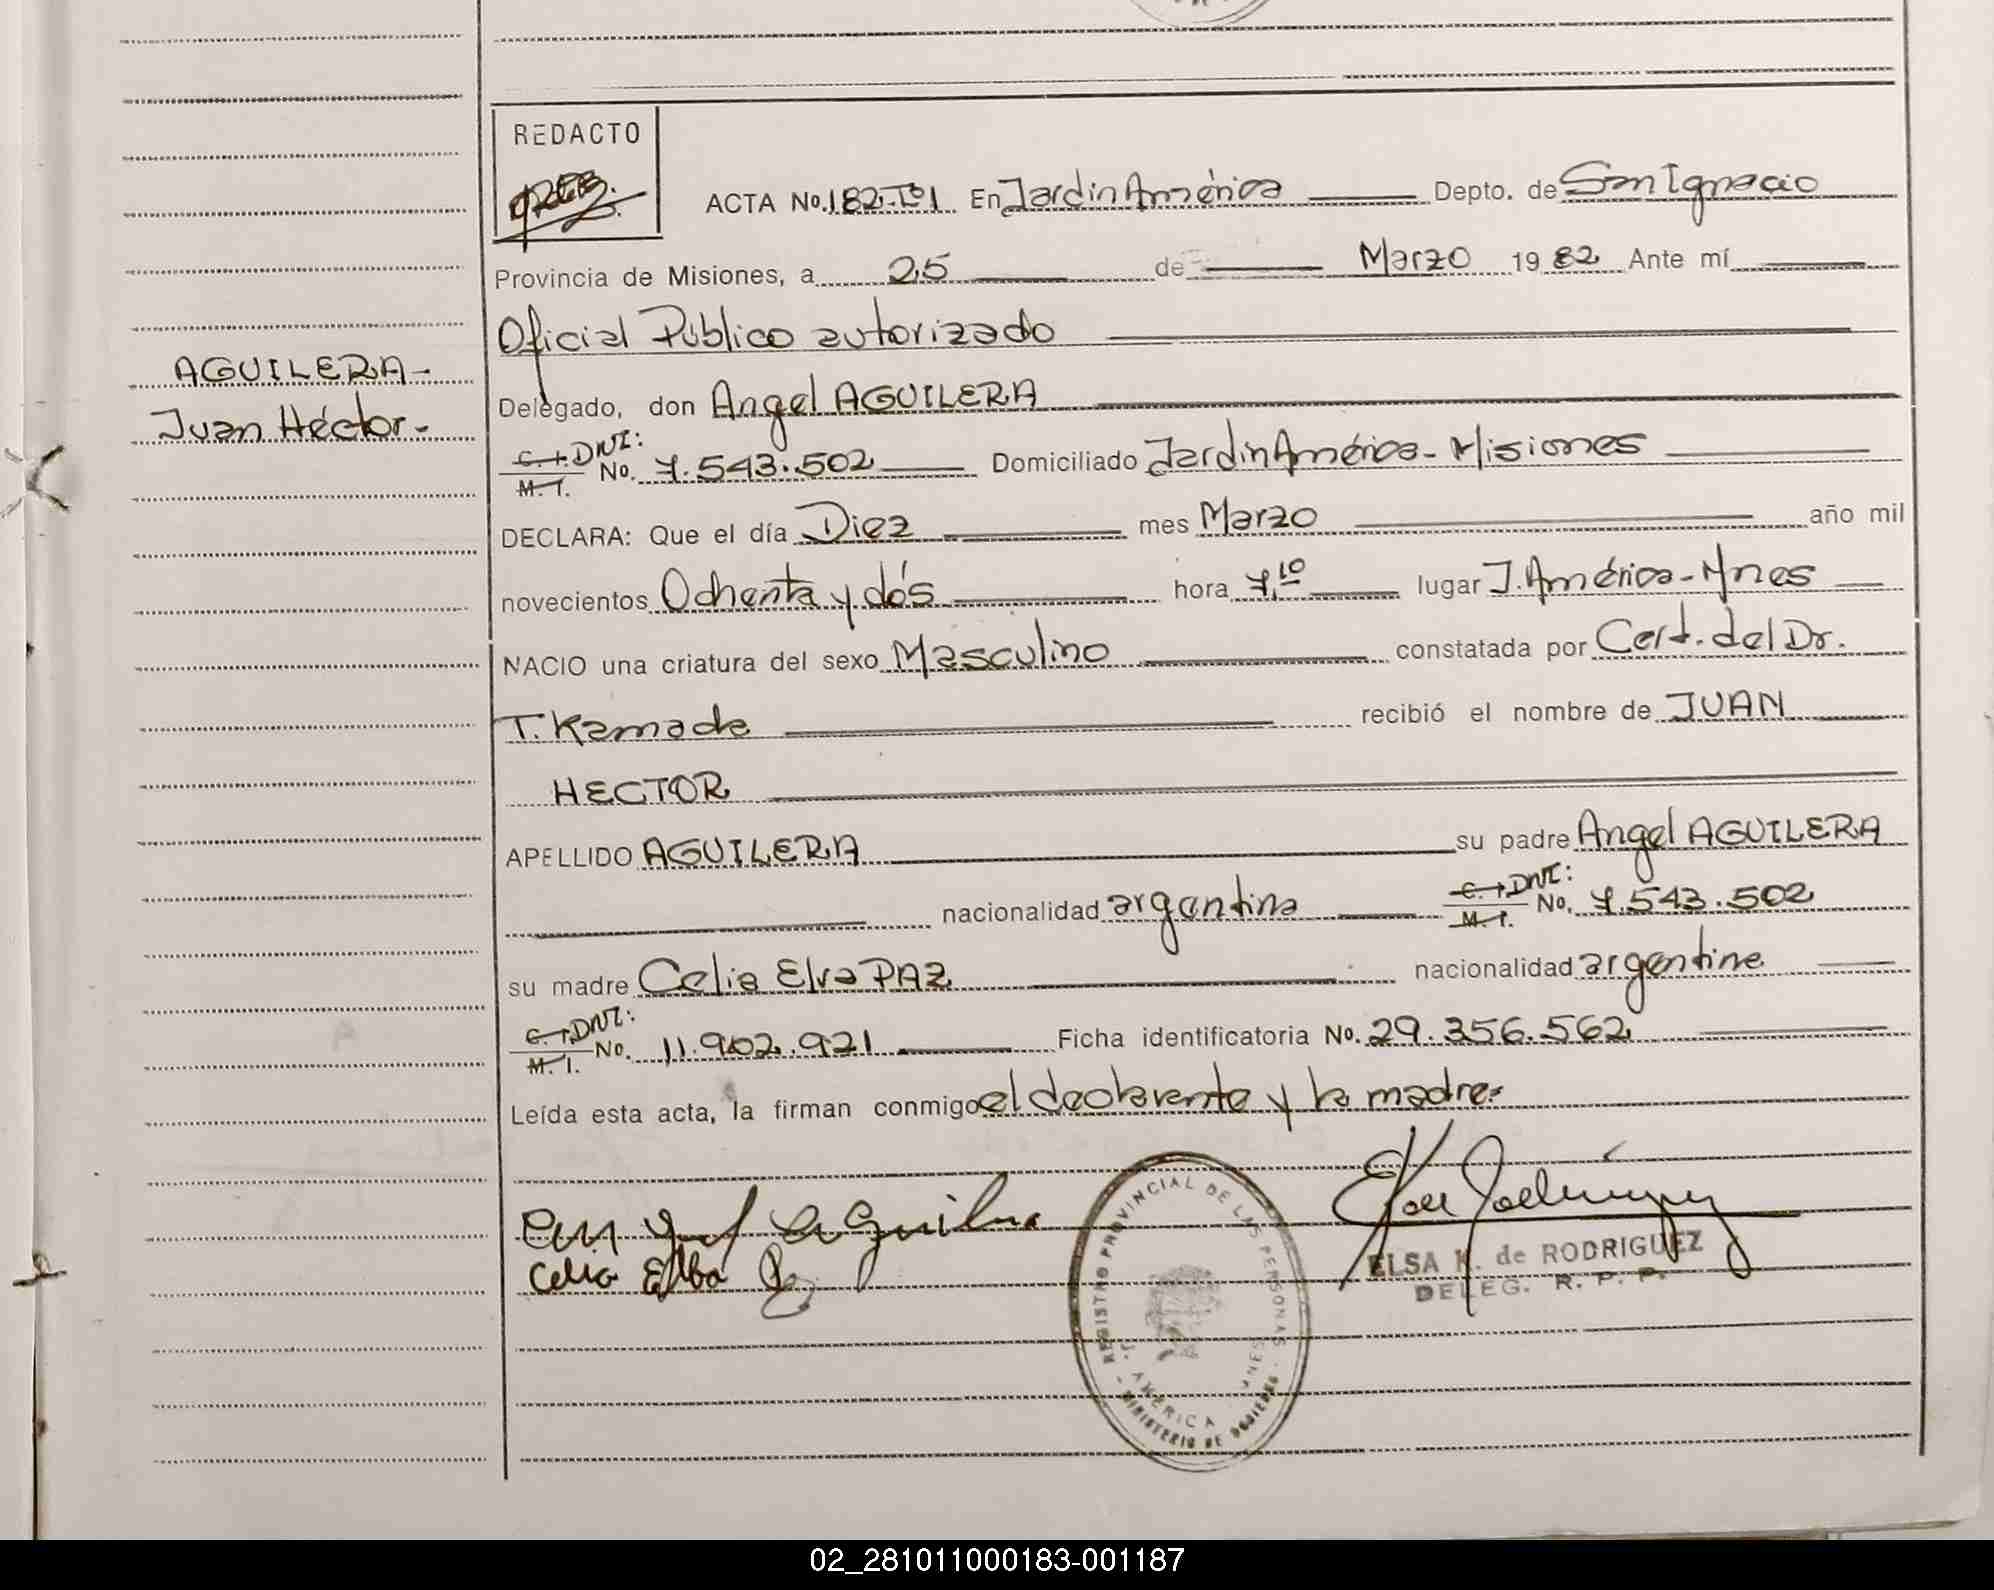 REDACTO
ACTA No. 182-Tº1 En Jardin América Depto. de San Ignacio
Provincia de Misiones, a 25 de Marzo 1982 Ante mí
Oficial Público autorizado
AGUILERA-
Juan Héctor-
Delegado, don Angel AGUILERA
C.I. DNI:
M.I. No. 7.543.502 Domiciliado Jardin América-Misiones
DECLARA: Que el día Diez mes Marzo año mil
novecientos Ochenta y dós hora 7,10 lugar J. América-Mnes
NACIO una criatura del sexo Masculino constatada por Cert. del Dr.
T. Kamada recibió el nombre de JUAN
HECTOR
APELLIDO AGUILERA su padre Angel AGUILERA
nacionalidad argentina C.I. DNI: M.I. No. 7.543.502
su madre Celia Elva PAZ nacionalidad argentina
C.I. DNI:
M.I. No. 11.902.921 Ficha identificatoria No. 29.356.562
Leída esta acta, la firman conmigo el declarante y la madre.
Angel Aguilera
Celia Elba P
REGISTRO PROVINCIAL DE LAS PERSONAS
J. AMERICA MNES
MINISTERIO DE GOBIERNO
ELSA K. de RODRIGUEZ
DELEG. R. P. P.
02_281011000183-001187